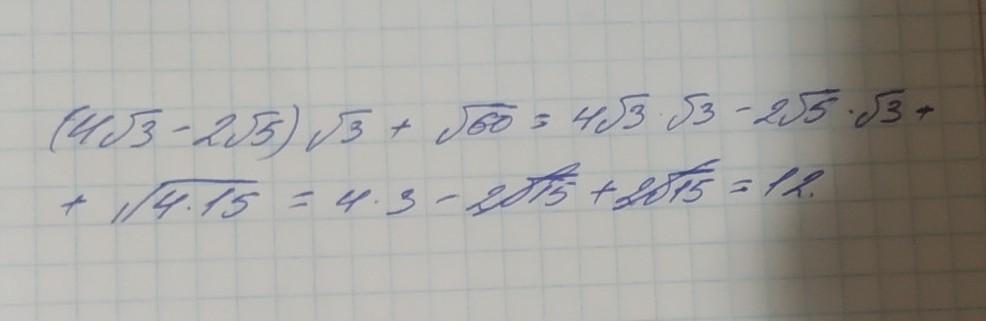 (4√3 - 2√5)√3 + √60 = 4√3·√3 - 2√5·√3 +
+ √4·15 = 4·3 - 2√15 + 2√15 = 12.